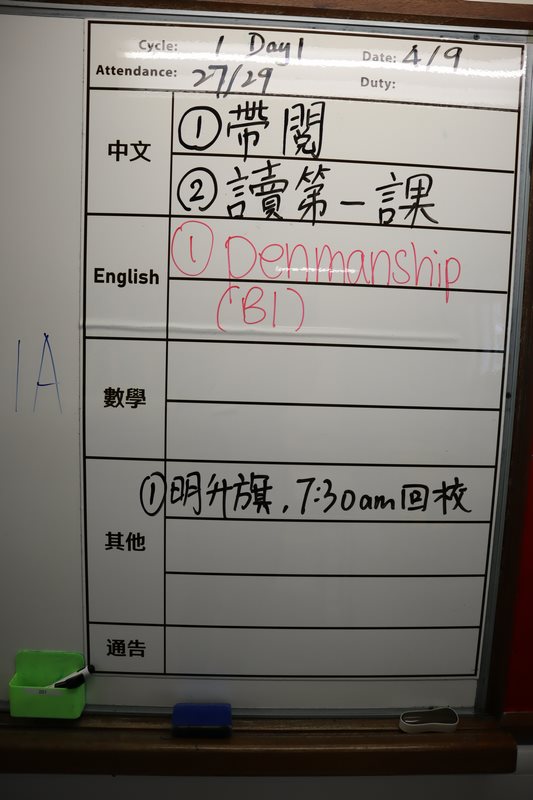 Cycle: 1 Day 1 Date: 4/9
Attendance: 27/29 Duty:
中文
① 帶閱
② 讀第一課
English
① Penmanship
(B1)
1A
數學
其他
① 明升旗, 7:30am 回校
通告